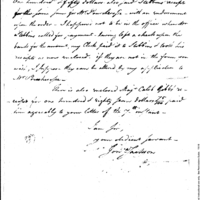 One hundred & fifty dollars also, and Stebbins receipt
for the same sum for Mr. with an endorsement
upon the order. I happened not to be in the office when Mr
Stebbins called for payment. having left a check upon the
bank for the amount, my Clerk paid it to Stebbins & took his
receipts as now enclosed: if they are not in the form you
wish, I suppose they can be altered by any application to
Mr
There is also enclosed Majr Caleb Gibbs re-
ceipt for one hundred & eighty four dollars paid
him agreeably to your letter of the 7th instant.
I am Sir
your obedient servant
Jona Jackson